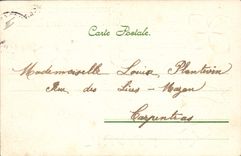 Carte Postale.
Mademoiselle Louise Plantevin
Rue des Lices - Mazan
Carpentras